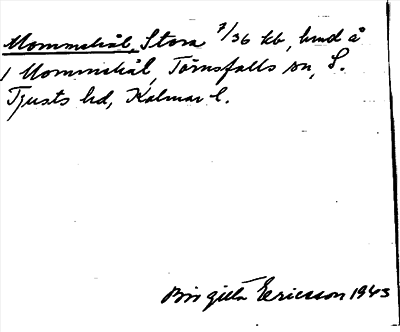 Mommehål, Stora 7/36 kb, hmd å
1 Mommehål, Törnsfalls sn, S.
Tjusts hd, Kalmar l.
Birgitta Ericsson 1943